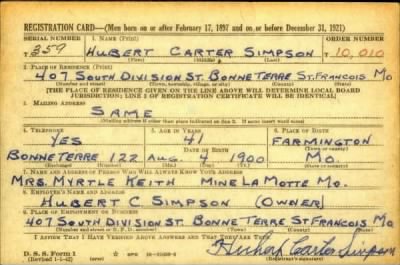 REGISTRATION CARD—(Men born on or after February 17, 1897 and on or before December 31, 1921)
SERIAL NUMBER 1. NAME (Print) ORDER NUMBER
T 359 HUBERT CARTER SIMPSON T 10,010
(First) (Middle) (Last)
2. PLACE OF RESIDENCE (Print)
407 SOUTH DIVISION ST. BONNE TERRE ST. FRANCOIS MO
(Number and street) (Town, township, village, or city) (County) (State)
[THE PLACE OF RESIDENCE GIVEN ON THE LINE ABOVE WILL DETERMINE LOCAL BOARD
JURISDICTION; LINE 2 OF REGISTRATION CERTIFICATE WILL BE IDENTICAL]
3. MAILING ADDRESS
SAME
[Mailing address if other than place indicated on line 2. If same insert word same]
4. TELEPHONE 5. AGE IN YEARS 6. PLACE OF BIRTH
YES 41 FARMINGTON
DATE OF BIRTH (Town or county)
BONNE TERRE 122 AUG. 4 1900 MO.
(Exchange) (Number) (Mo.) (Day) (Yr.) (State or country)
7. NAME AND ADDRESS OF PERSON WHO WILL ALWAYS KNOW YOUR ADDRESS
MRS. MYRTLE KEITH MINE LA MOTTE MO.
8. EMPLOYER'S NAME AND ADDRESS
HUBERT C. SIMPSON (OWNER)
9. PLACE OF EMPLOYMENT OR BUSINESS
407 SOUTH DIVISION ST. BONNE TERRE ST. FRANCOIS MO
(Number and street or R. F. D. number) (Town) (County) (State)
I AFFIRM THAT I HAVE VERIFIED ABOVE ANSWERS AND THAT THEY ARE TRUE.
D. S. S. Form 1 Hubert Carter Simpson
(Revised 1-1-42) (over)